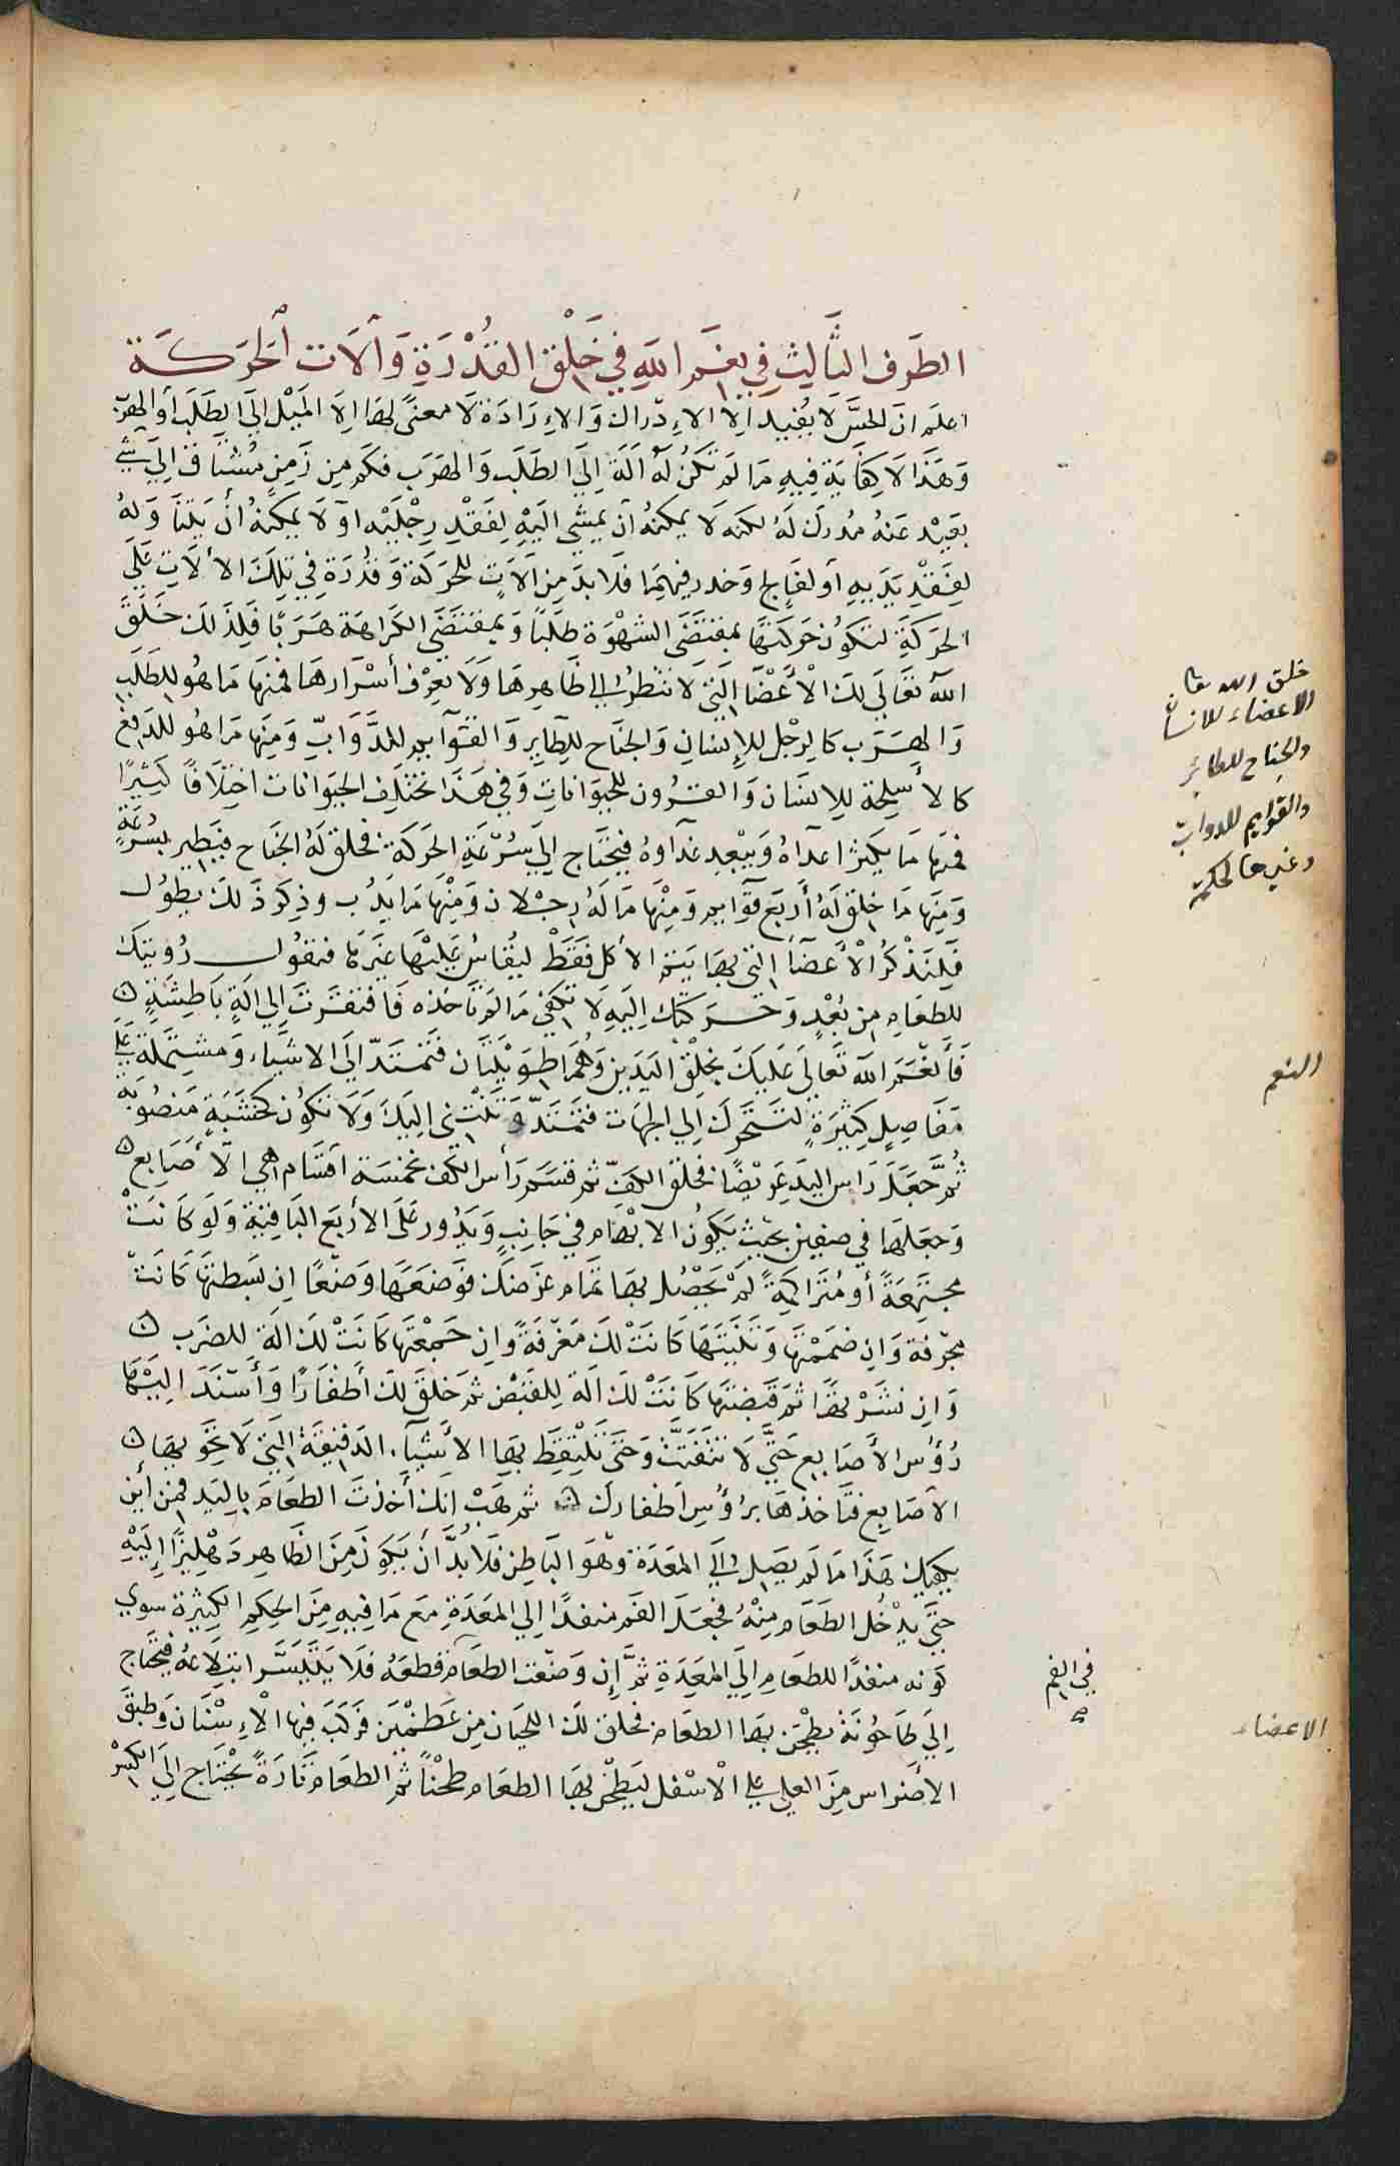 الطَرَف الثَّالِث فِي نِعَم اللهِ فِي خَلْق القُدْرَةِ وَآلَات الحَرَكَة
اعلَم ان الحسَّ لا يُفيد الا الاِدْراك وَالاِرَادَة لَا معنًى لهَا اِلَا المَيْل اِلَي الطَلَب أو الهرَب
وَهَذَا لَا كِفَايَة فِيهِ مَا لَم تَكُنْ لَهُ آلَة اِلَي الطَلَب وَالهَرَب فكَم مِن زَمِنٍ مُشْتَاق اِلَي شَيْ
بعَيْد عَنهُ مُدرك لَهُ لكنه لَا يمكنهُ اَن يمشي اليَهِ لفَقْدِ رِجْلَيْهِ اَو لَا يمكِنهُ أنْ يَتَنَاوَلهُ
لِفَقْدِ يَدَيهِ اَو لفَالِج وَخدر فيهمَا فلَا بدَ مِن اَلَاتٍ للحَرَكَة وَقُدْرَةٍ فِي تِلكَ الاَلَاتِ عَلَي
الحَرَكَةِ لتكُون حَركتهَا بمقتَضَي الشَهْوَة طلَبًا وَبمقتَضَي الكَرَاهَة هَرَبًا فَلِذَلكَ خَلَقَ
اللهُ تعَالَي لكَ الْأَعْضَا التَي تَنْظرُ اِلي ظَاهِرهَا وَلَا تَعْرِف أسْرَارهَا فمنهَا مَا هُو للطَلَبِ
وَالهَرَب كالرِجْل للاِنسَان وَالجنَاح للطَايِر وَالقوَآيم للدَّوَابِّ وَمِنهَا مَا هُو للدَفع
كالأسلِحَة للاِنسَان وَالقرُون للحيَوَانَاتِ وَفي هَذَا تختَلِف الحيَوَانَات اختِلَافًا كثِيرًا
فمنهَا مَا يَكثر اعدَآهُ وَيبْعِد غذَآوهُ فيحتَاج اِلَي سُرْعَةِ الحَرَكَة فخلَق لَهُ الجنَاح فيَطِير بسُرْعَةٍ
وَمِنهَا مَا خلِق لَهُ أَرْبَع قوَآيم وَمِنْهَا مَا لَهُ رِجْلَان وَمِنْهَا مَا يَدُب وذِكرَ ذَلكَ يطُول
فَلنَذْكُرُ الْأعْضَآ التي بهَا يَتم الأكل فَقَطْ ليُقاسُ عَليْهَا غيَرهَا فنقُول رُويتك
للطعَام مِن بُعْدٍ وَحَرَكتَك اِليَهِ لَا تكفي مَا لم تَأخذه فَافتقَرتَ اِلي الَةٍ بَاطِشَةٍ
فَأنْعَمَ اللهُ تعَالَي عَليَكَ بخَلْق اليَدَين وَهُمَا طَوِيْلتَان فَتمْتَدّ اِلَي الاشيَاء وَمشتَملَة عَلي
مفَاصِل كثِيَرَةٍ لتَتَحَرك اِلي الجهَات فتمْتَدّ وَتَنْثني اليَكَ وَلَا تكُون كخشَبَةٍ مَنصُوبَة
ثُمَّ جَعَلَ رَاس اليَد عَرِيْضًا فخلَق الكفّ ثم قسَم رَأس الكف بخمسَة اَقسَام هي الأصَابع
وَجعَلهَا في صفيَن بحَيْث يَكوُن الابهَام في جَانِبٍ وَيدُور عَلَي الأربَع البَاقيَة وَلَو كَانتْ
مجتمِعَةً أو مُتَرَاكمِةً لَمْ يَحْصُل بهَا تمَام غرَضكَ فوَضعَهَا وَضْعًا اِن بسَطتهَا كَانتْ
مجرفة وَان ضمَمْتهَا وَثنَيتَهَا كَانَتْ لكَ مَغرَفَةً وان جَمعْتهَا كَانَتْ لكَ الَة للضرَب
وَان نشَرْتهَا ثمَ قبَضتهَا كَانَتْ لكَ الَة لِلقَبْض ثم خَلقَ لكَ أَظفَارًا وَأسْنَدَ اليَهَا
رُؤُس الأصَابِع حَتَّي لَا تتَفتَّتْ وَحَتَي تَلْتقِط بهَا الأشيَآ الدَقيقَة التي لَا تحوِيهَا
الاصَابع فتَأخذهَا برُؤُس اَظفَارك ثم هَبْ انكَ أخذتَ الطعَامَ باليَد فمن أين
يكفيك هَذَا مَا لَم يَصِل اِلَي المعَدَة وَهوَ البَاطن فلَا بُدَّ أن يَكوُن مِنَ الظَاهِر دَهْليزًا اِليَهِ
حتَي يدْخُل الطَعَام مِنْهُ فجعَلَ الفَم منفذًا اِلي المعَدَةِ معَ مَا فيهِ مِنَ الحِكم الكثِيرة سوي
كَونه منفذًا للطعَامِ اِلَي المعِدَةِ ثُمَّ إن وَضعْت الطعَام قطعَهُ فلَا يَتَيسَّر ابتلَاعهُ فيحتَاج
اِلَي طاحُونَة يطحَن بهَا الطعَام فخلق لكَ اللحيَان مِن عَظمَيْن وَركبَ فيهَا الاِسْنَان وَطبقَ
الأضرَاس مِنَ العلي علي الْأسْفل ليَطْحَن بهَا الطعَام طحْنًا ثم الطعَام تَارَةً يحْتَاج اِلَي الكسْر
خلق الله تعا
الاعضاء للانسان
والجناح للطائر
والقوايم للدواب
وغيرها لحكمة
النعم
في الفم
الاعضاء